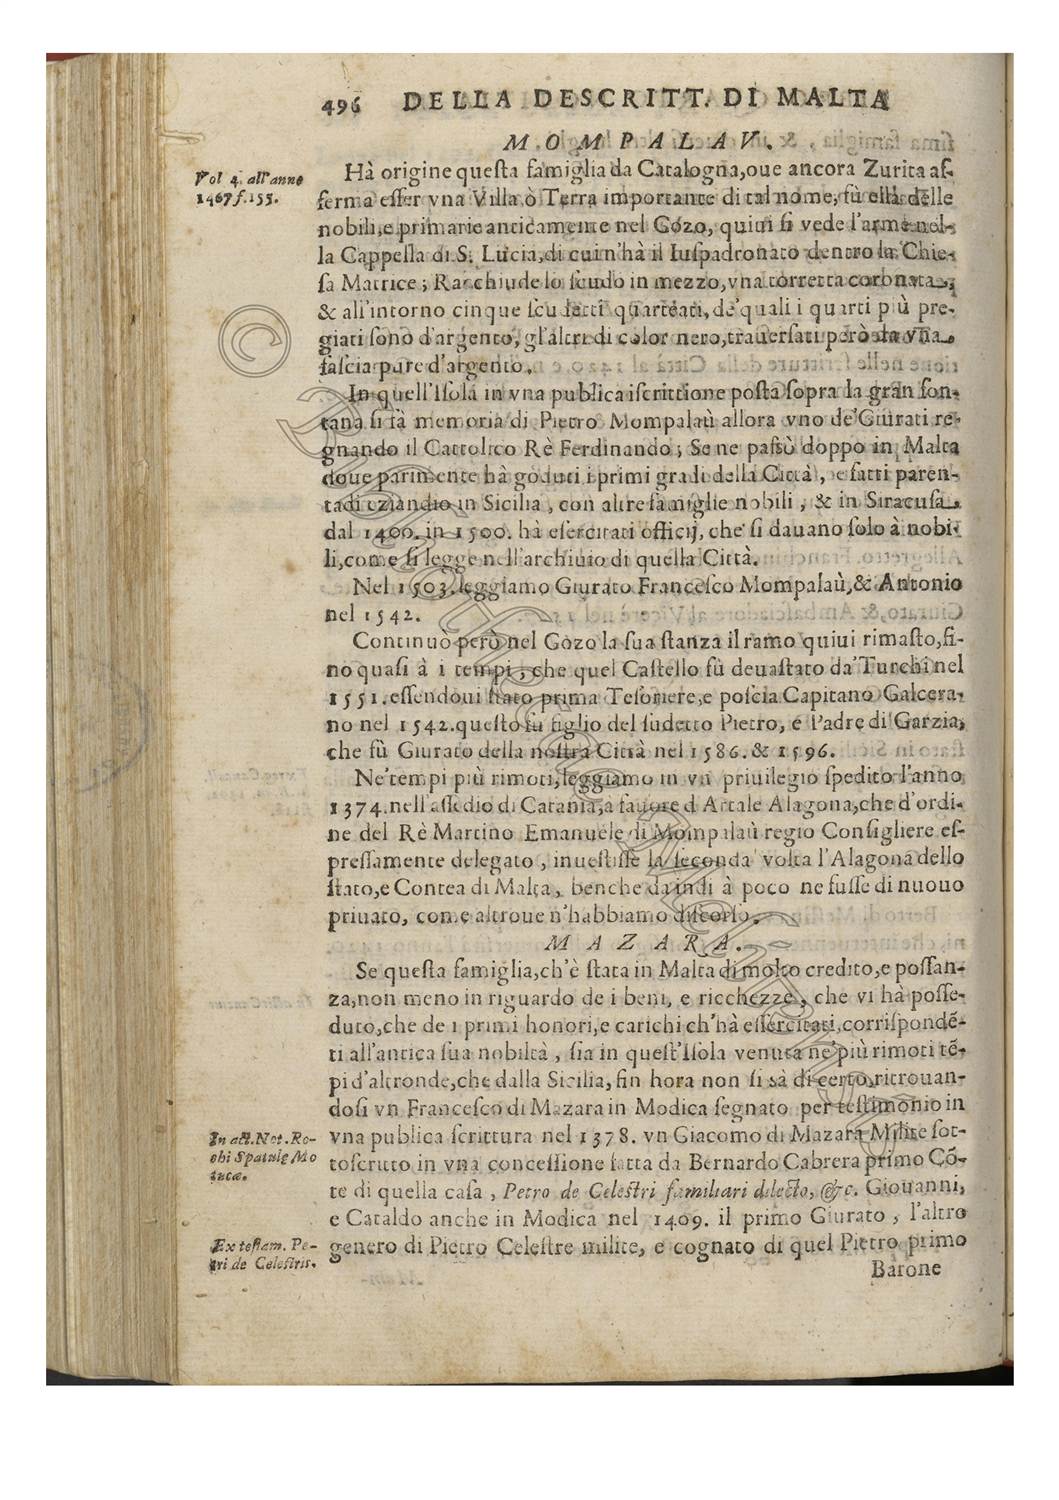 496 DELLA DESCRITT. DI MALTA
MOMPALAV.
Hà origine questa famiglia da Catalogna,oue ancora Zurita af-
Vol 4. all'anno
1467 f.155.
ferma esser vna Villa ò Terra importante di tal nome, fù ella delle
nobili,e primarie anticamente nel Gozo, quiui si vede l'arme nel-
la Cappella di S. Lucia,di cui n'hà il Iuspadronato dentro la Chie-
sa Matrice; Racchiude lo scudo in mezzo,vna torretta coronata,
& all'intorno cinque scudetti quarteati, de'quali i quarti più pre-
giati sono d'argento, gl'altri di color nero,trauersati però da vna
fascia pure d'argento.
In quell'Isola in vna publica iscrittione posta sopra la gran fon-
tana si fà memoria di Pietro Mompalaù allora vno de'Giurati re-
gnando il Cattolico Rè Ferdinando; Se ne passò doppo in Malta
doue parimente hà goduti i primi gradi della Città, e fatti paren-
tadi eziandio in Sicilia, con altre famiglie nobili, & in Siracusa
dal 1400. in 1500. hà esercitati officij, che si dauano solo à nobi-
li,come si legge nell'archiuio di quella Città.
Nel 1503. leggiamo Giurato Francesco Mompalaù,& Antonio
nel 1542.
Continuò però nel Gozo la sua stanza il ramo quiui rimasto,si-
no quasi à i tempi, che quel Castello fù deuastato da'Turchi nel
1551. essendoui stato prima Tesoriere,e poscia Capitano Galcera-
no nel 1542.questo fu figlio del sudetto Pietro, e Padre di Garzia,
che fù Giurato della nostra Città nel 1586.& 1596.
Ne'tempi più rimoti,leggiamo in vn priuilegio spedito l'anno
1374.nell'assedio di Catania,a fauore d'Artale Alagona,che d'ordi-
ne del Rè Martino Emanuele di Mompalaù regio Consigliere es-
pressamente delegato, inuestisse la seconda volta l'Alagona dello
stato,e Contea di Malta, benche da indi à poco ne fusse di nuouo
priuato, come altroue n'habbiamo discorso.
MAZARA.
Se questa famiglia,ch'è stata in Malta di molto credito,e possan-
za,non meno in riguardo de i beni, e ricchezze, che vi hà posse-
duto,che de i primi honori,e carichi ch'hà essercitati,corrispondē-
ti all'antica sua nobiltà, sia in quest'Isola venuta ne'più rimoti tē-
pi d'altronde,che dalla Sicilia, fin hora non si sà di certo,ritrouan-
dosi vn Francesco di Mazara in Modica segnato per testimonio in
In act.Not.Ro-
chi Spatulę Mo
tucæ.
vna publica scrittura nel 1378. vn Giacomo di Mazara Milite sot-
toscritto in vna concessione fatta da Bernardo Cabrera primo Cō-
te di quella casa, Petro de Celestri familiari dilecto, &c. Giouanni,
e Cataldo anche in Modica nel 1409. il primo Giurato, l'altro
Ex testam. Pe-
tri de Celestris.
genero di Pietro Celestre milite, e cognato di quel Pietro primo
Barone